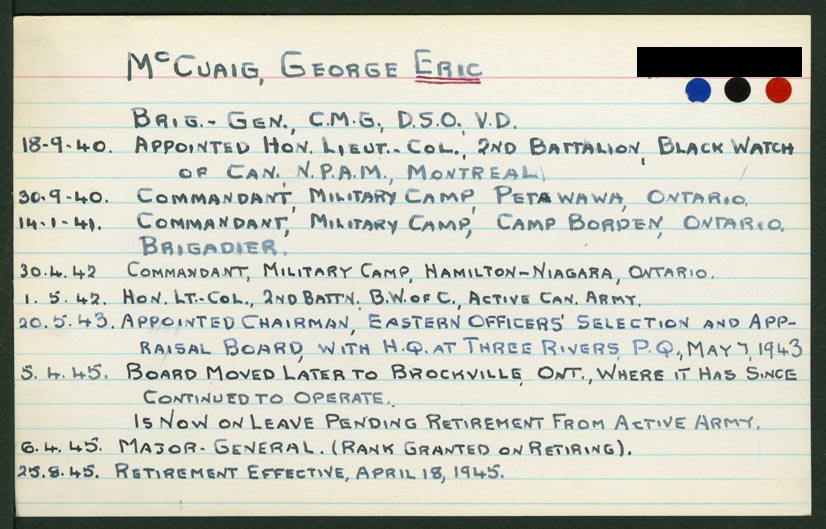 McCUAIG, GEORGE ERIC
BRIG.-GEN., C.M.G., D.S.O., V.D.
18-9-40. APPOINTED HON. LIEUT.-COL., 2ND BATTALION, BLACK WATCH
OF CAN. N.P.A.M., MONTREAL.
30-9-40. COMMANDANT, MILITARY CAMP, PETAWAWA, ONTARIO.
14-1-41. COMMANDANT, MILITARY CAMP, CAMP BORDEN, ONTARIO.
BRIGADIER.
30.4.42 COMMANDANT, MILITARY CAMP, HAMILTON-NIAGARA, ONTARIO.
1.5.42. HON. LT.-COL., 2ND BATT'N. B.W. OF C., ACTIVE CAN. ARMY.
20.5.43. APPOINTED CHAIRMAN, EASTERN OFFICERS' SELECTION AND APP-
RAISAL BOARD, WITH H.Q. AT THREE RIVERS, P.Q., MAY 7, 1943
5.4.45. BOARD MOVED LATER TO BROCKVILLE, ONT., WHERE IT HAS SINCE
CONTINUED TO OPERATE.
IS NOW ON LEAVE PENDING RETIREMENT FROM ACTIVE ARMY.
6.4.45. MAJOR-GENERAL. (RANK GRANTED ON RETIRING).
25.8.45. RETIREMENT EFFECTIVE, APRIL 18, 1945.